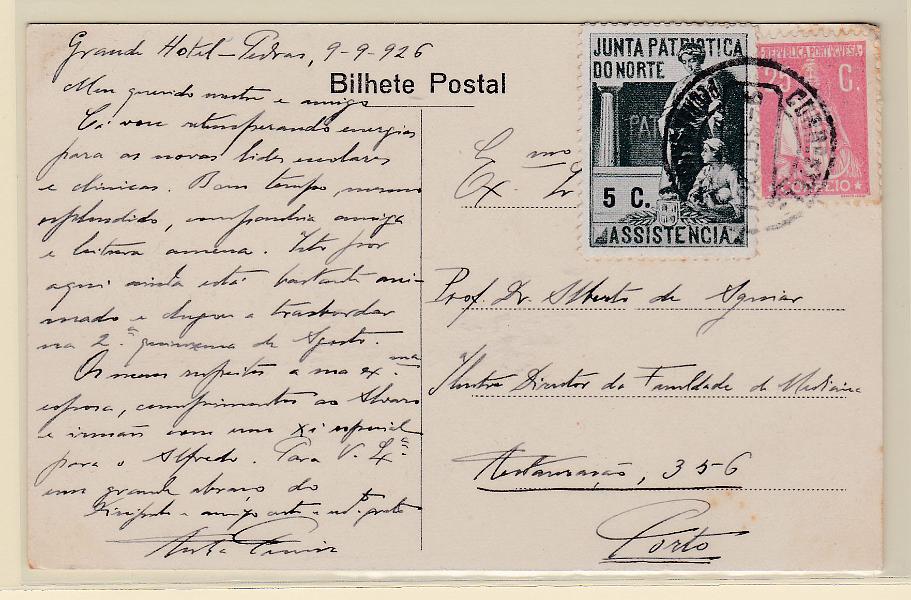 Grande Hotel-Pedras, 9-9-926
Bilhete Postal
Meu querido mestre e amigo
Cá vou retemperando energias
para as novas lides escolares
e clinicas. Bom tempo, mesmo
esplendido, companhia amiga
e leitura amena. Isto por
aqui ainda está bastante ani-
mado e chegou a trasbordar
na 2.ª quinzena de Agosto.
Os meus respeitos a sua ex.ma
esposa, cumprimentos ao Alvaro
e irmãs com um xi especial
para o Alfredo. Para V. Ex.ª
um grande abraço do
Discipulo e amigo
JUNTA PATRIOTICA
DO NORTE
PAT
5 C.
ASSISTENCIA
REPUBLICA PORTUGUESA
25 C.
CORREIO
Ex.mo
Prof. Dr. Alberto de Aguiar
Ilustre Director da Faculdade de Medicina
Restauração, 356
Porto